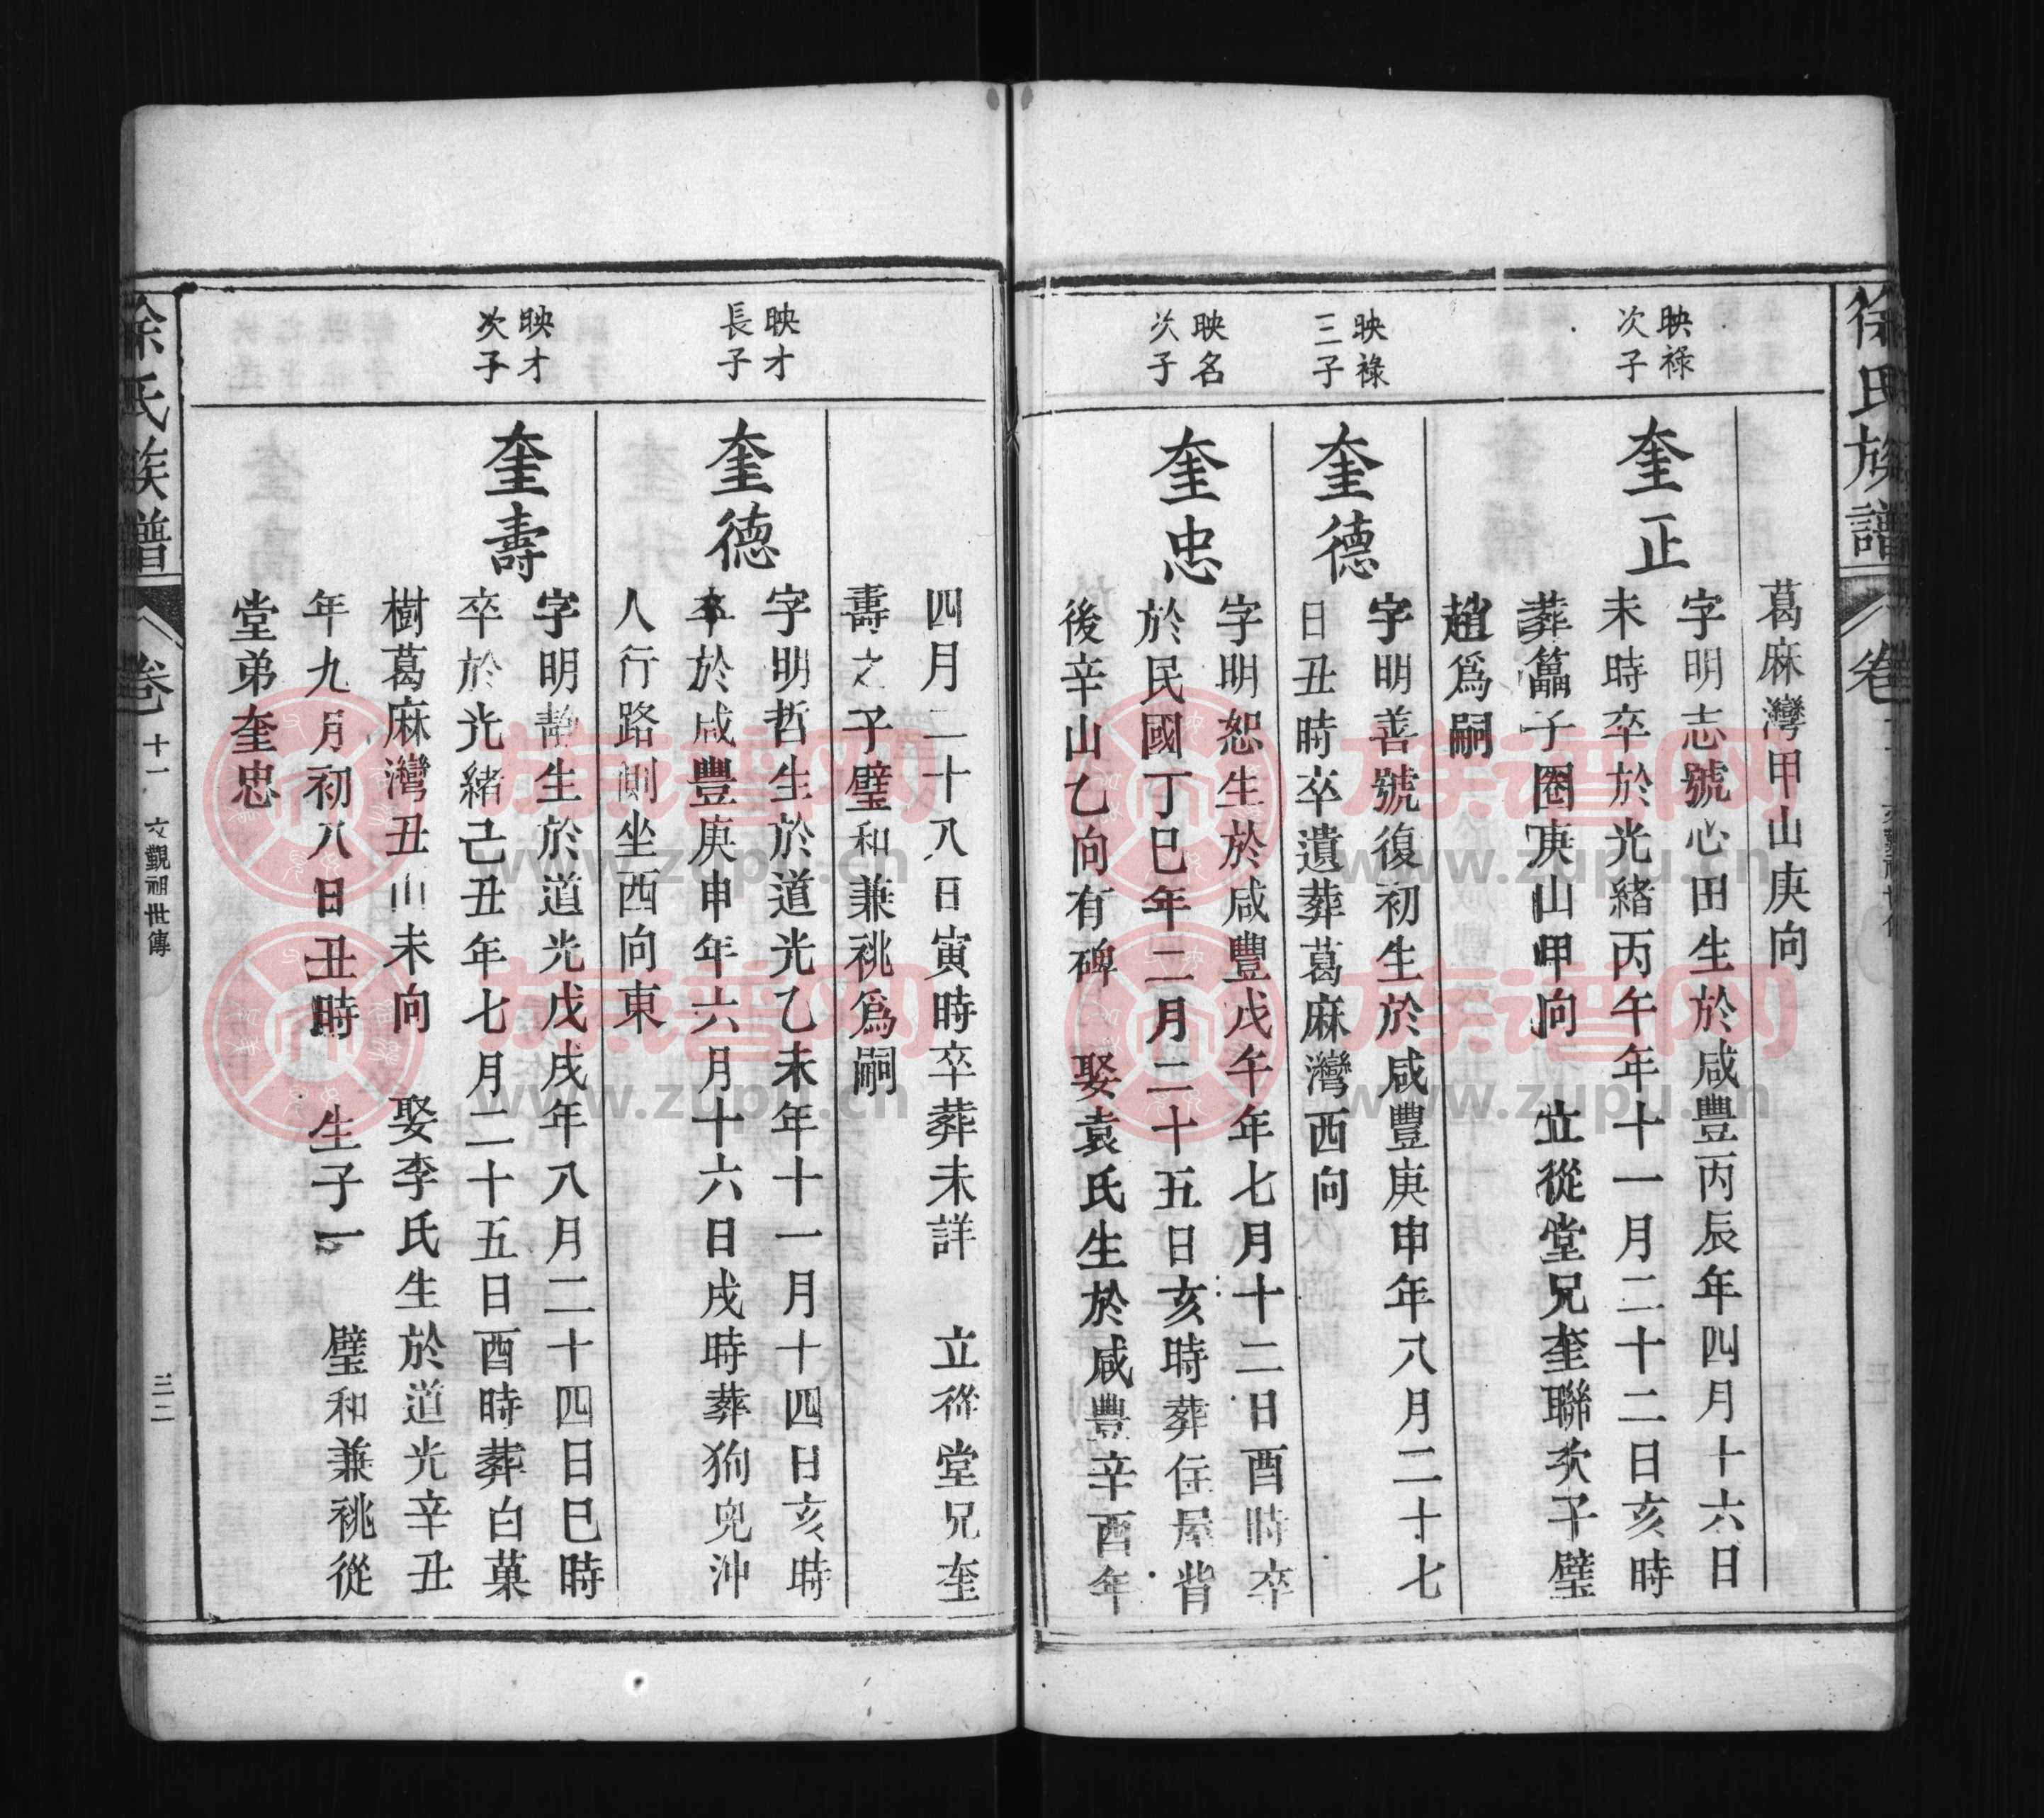 徐氏族譜
卷十一
葛麻灣甲山庚向
映祿
次子
奎正
字明志號心田生於咸豐丙辰年四月十六日
未時卒於光緒丙午年十一月二十二日亥時
葬籠子圈庚山甲向 立從堂兄奎聯次子璧
趙爲嗣
映祿
三子
奎德
字明善號復初生於咸豐庚申年八月二十七
日丑時卒遺葬葛麻灣西向
映名
次子
奎忠
字明恕生於咸豐戊午年七月十二日酉時卒
於民國丁巳年二月二十五日亥時葬住屋背
後辛山乙向有碑 娶袁氏生於咸豐辛酉年
四月二十八日寅時卒葬未詳 立從堂兄奎
壽之子璧和兼祧爲嗣
映才
長子
奎德
字明哲生於道光乙未年十一月十四日亥時
卒於咸豐庚申年六月十六日戌時葬狗兒沖
人行路側坐西向東
映才
次子
奎壽
字明靜生於道光戊戌年八月二十四日巳時
卒於光緒己丑年七月二十五日酉時葬白菓
樹葛麻灣丑山未向 娶李氏生於道光辛丑
年九月初八日丑時 生子一 璧和兼祧從
堂弟奎忠
徐氏族譜
卷十一
文觀祖世傳
三二
族谱网
www.zupu.cn
族谱网
www.zupu.cn
族谱网
www.zupu.cn
族谱网
www.zupu.cn